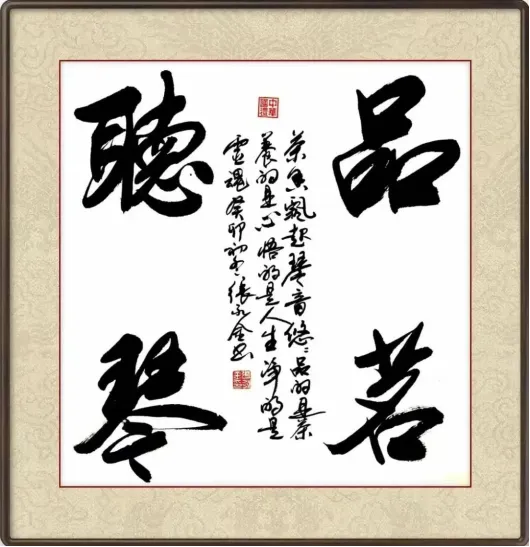 品茗
聽琴
茶香飄起琴音悠々品的是茶
養的是心悟的是人生净的是
靈魂癸卯初冬張永金书